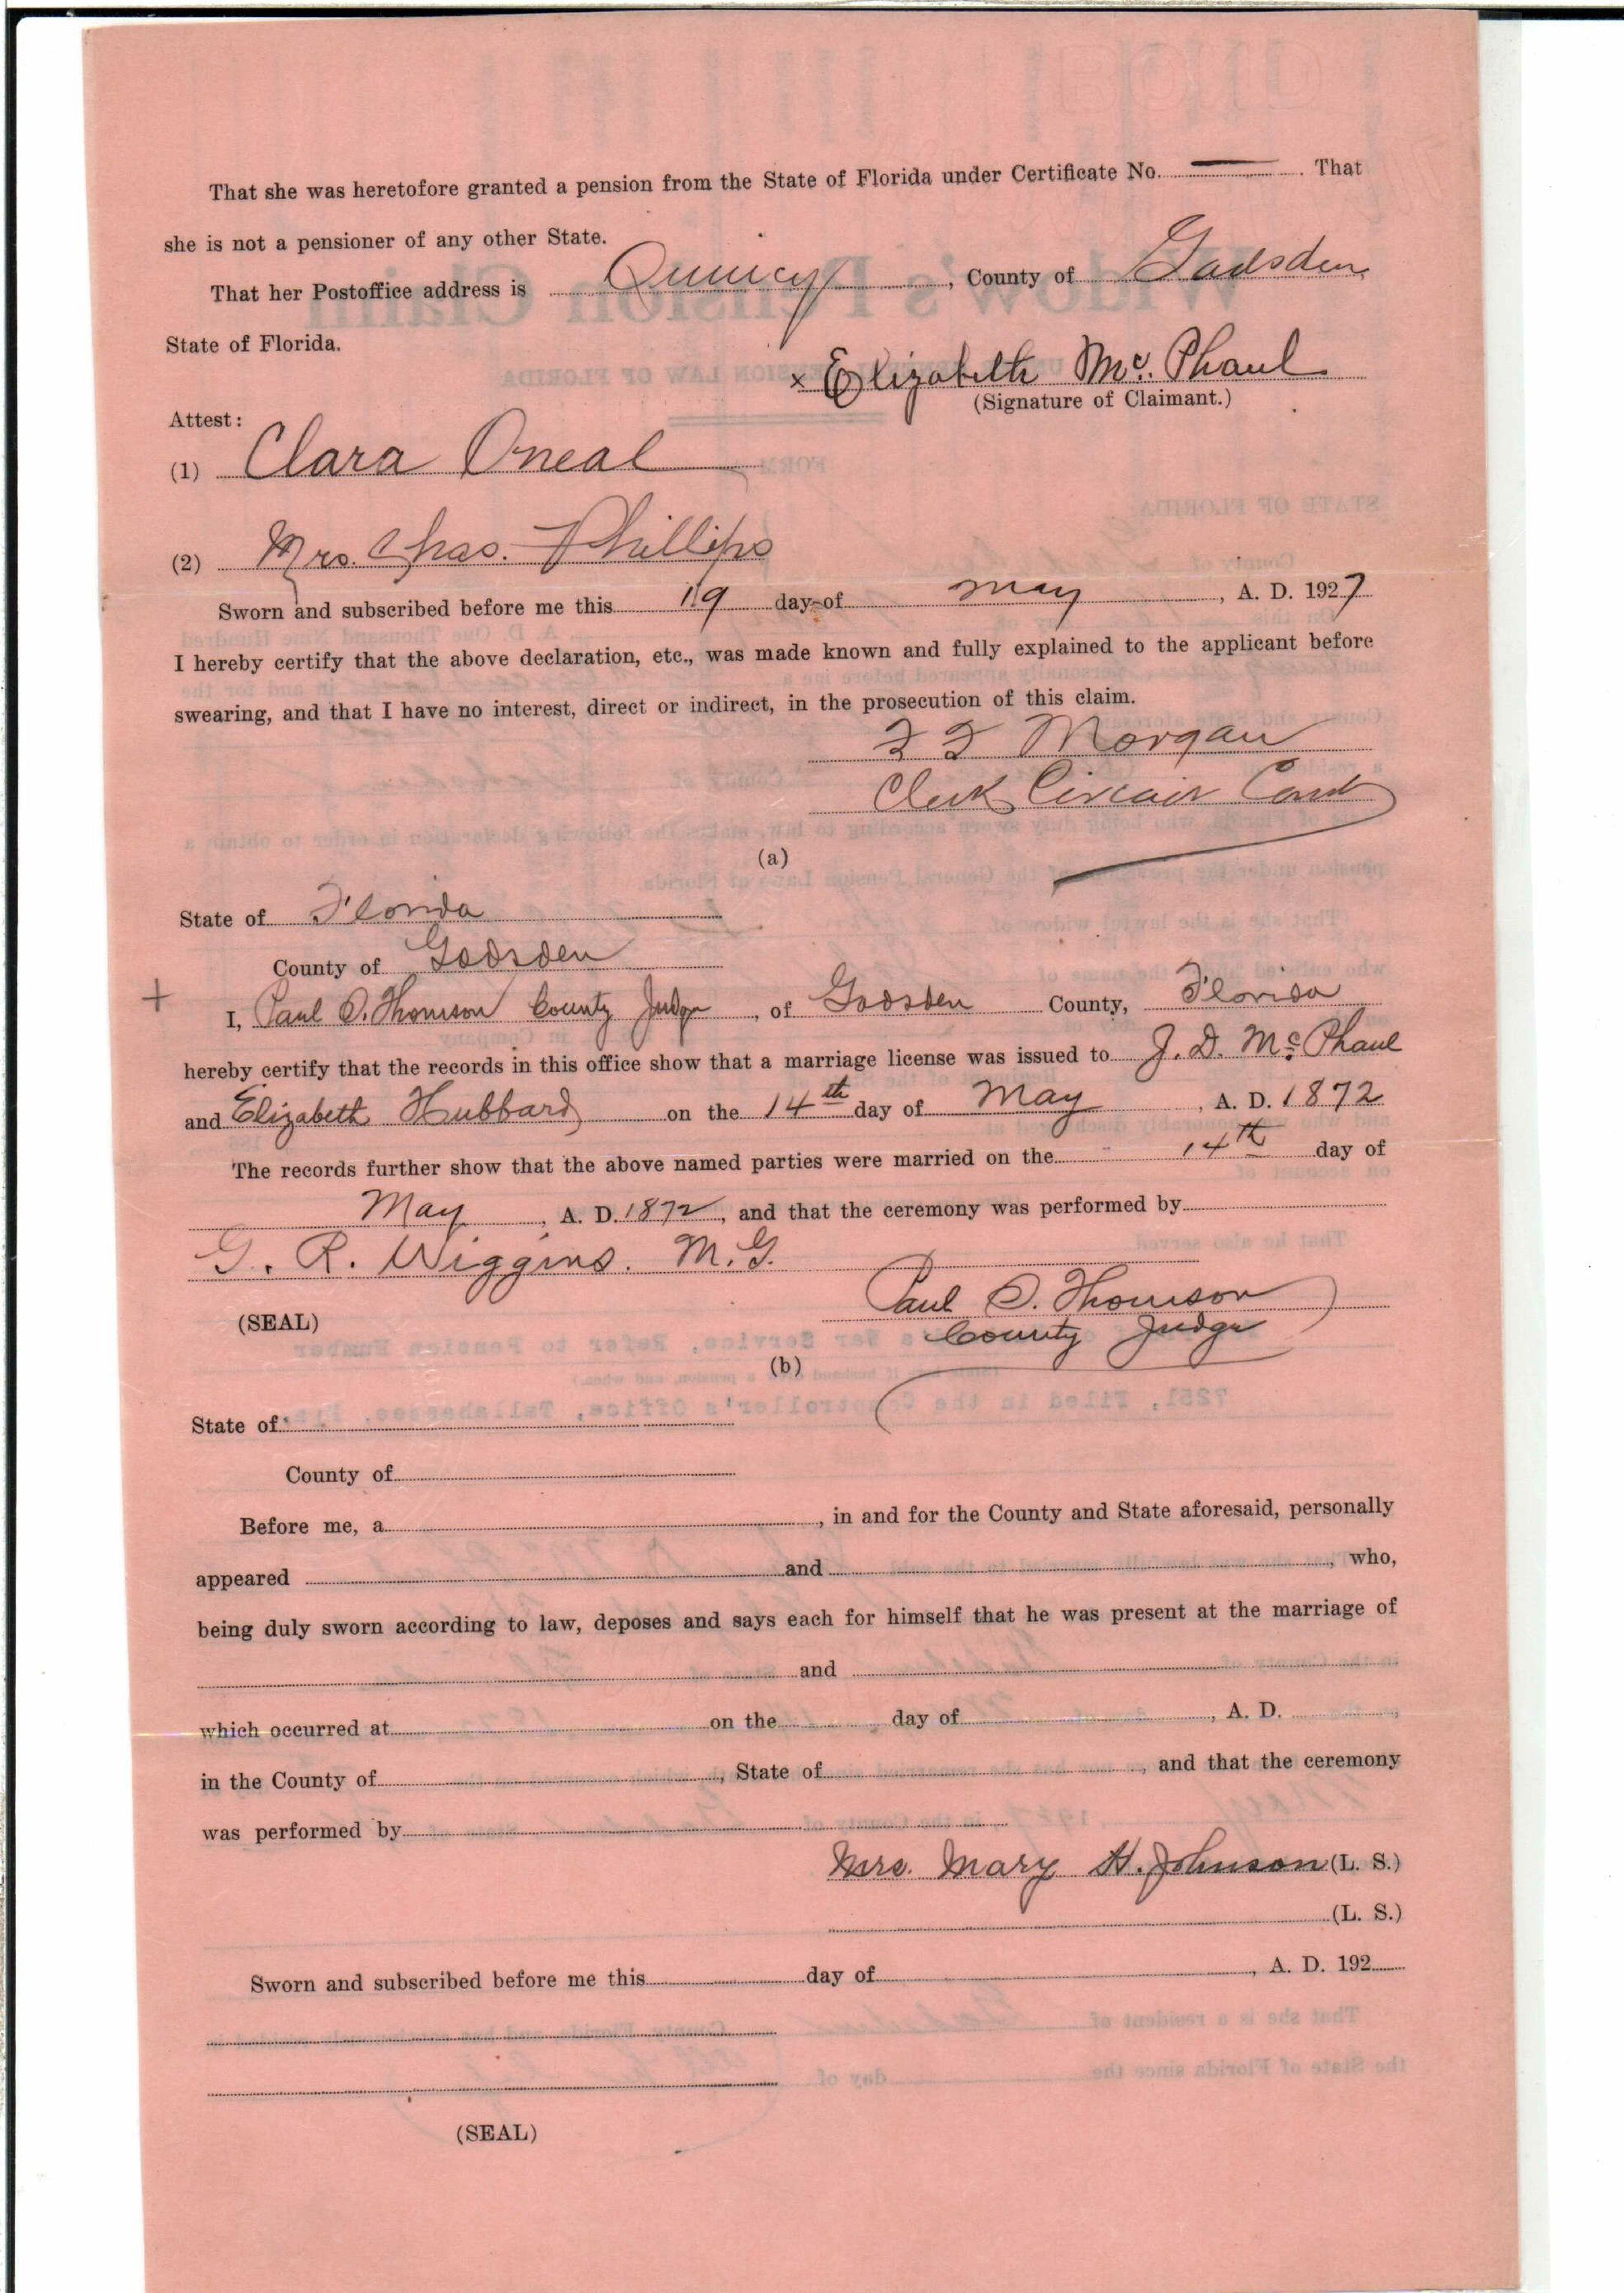 That she was heretofore granted a pension from the State of Florida under Certificate No. —— . That
she is not a pensioner of any other State.
That her Postoffice address is Quincy, County of Gadsden,
State of Florida.
x Elizabeth Mc. Phaul
(Signature of Claimant.)
Attest:
(1) Clara Oneal
(2) Mrs. Chas. Phillips
Sworn and subscribed before me this 19 day of may, A. D. 1927
I hereby certify that the above declaration, etc., was made known and fully explained to the applicant before
swearing, and that I have no interest, direct or indirect, in the prosecution of this claim.
Morgan
Clerk Circuit Court
(a)
State of Florida
County of Gadsden
+ I, Paul Thomson County Judge, of Gadsden County, Florida
hereby certify that the records in this office show that a marriage license was issued to J. D. McPhaul
and Elizabeth Hubbard on the 14th day of May, A. D. 1872
The records further show that the above named parties were married on the 14th day of
May, A. D. 1872, and that the ceremony was performed by
G. R. Wiggins. M.G.
Paul Thomson
(SEAL)
County Judge
(b)
State of
County of
Before me, a , in and for the County and State aforesaid, personally
appeared and , who,
being duly sworn according to law, deposes and says each for himself that he was present at the marriage of
and
which occurred at on the day of , A. D. ,
in the County of , State of , and that the ceremony
was performed by
Mrs. Mary H. Johnson (L. S.)
(L. S.)
Sworn and subscribed before me this day of , A. D. 192
(SEAL)